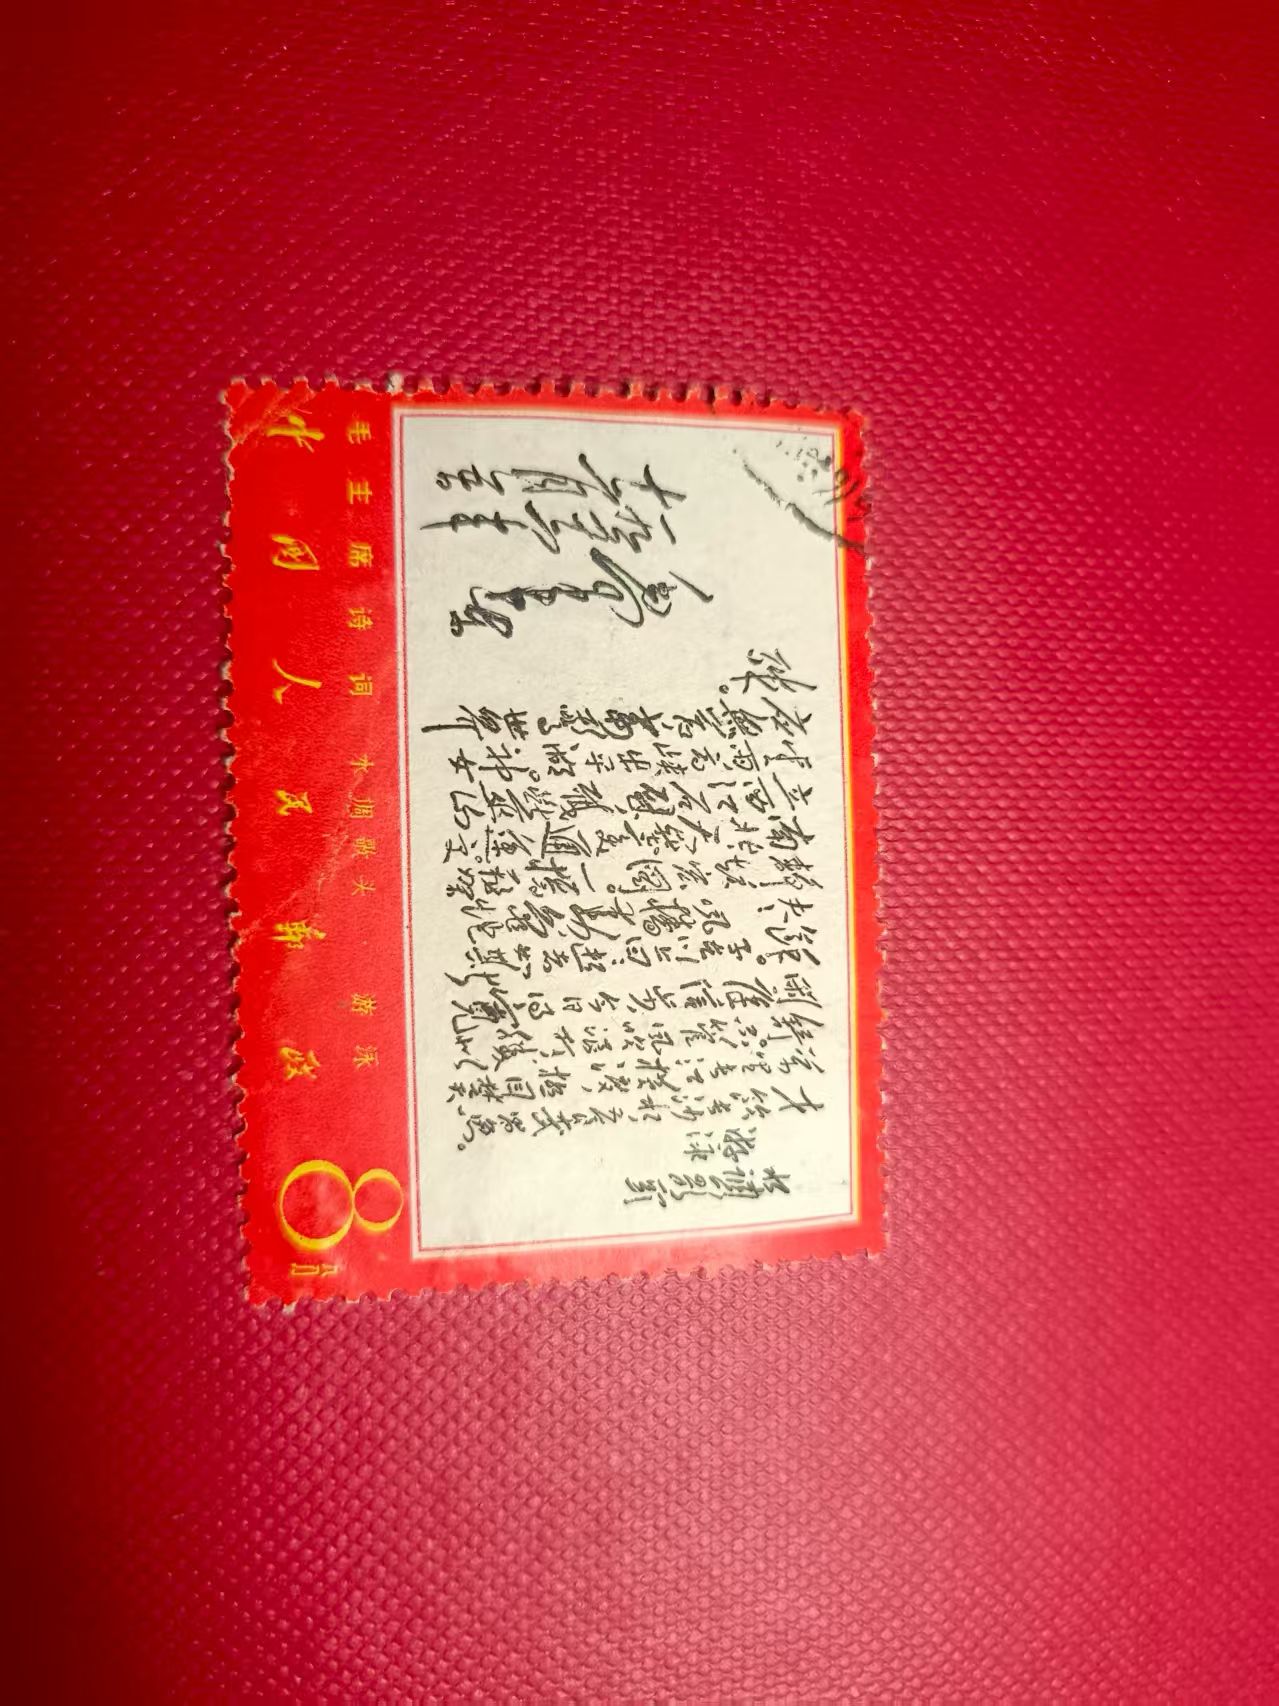 水调歌头
游泳
才饮长沙水，又食武昌鱼。
万里长江横渡，极目楚天
舒。不管风吹浪打，胜似
闲庭信步，今日得宽馀。
子在川上曰：逝者如斯夫！
风樯动，龟蛇静，起宏图。
一桥飞架南北，天堑变通途。
更立西江石壁，截断巫山云
雨，高峡出平湖。神女
应无恙，当惊世界
殊。
毛泽东
毛主席诗词 水调歌头 游泳
中国人民邮政 8分